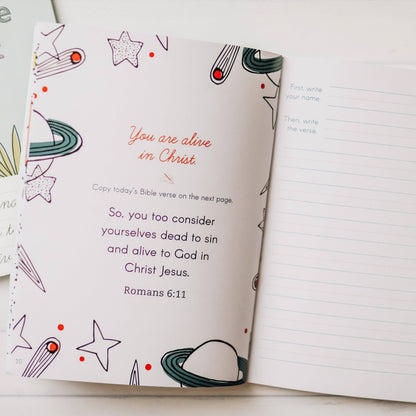 You are alive
in Christ.
Copy today's Bible verse on the next page.
So, you too consider
yourselves dead to sin
and alive to God in
Christ Jesus.
Romans 6:11
20
First, write
your name.
Then, write
the verse.